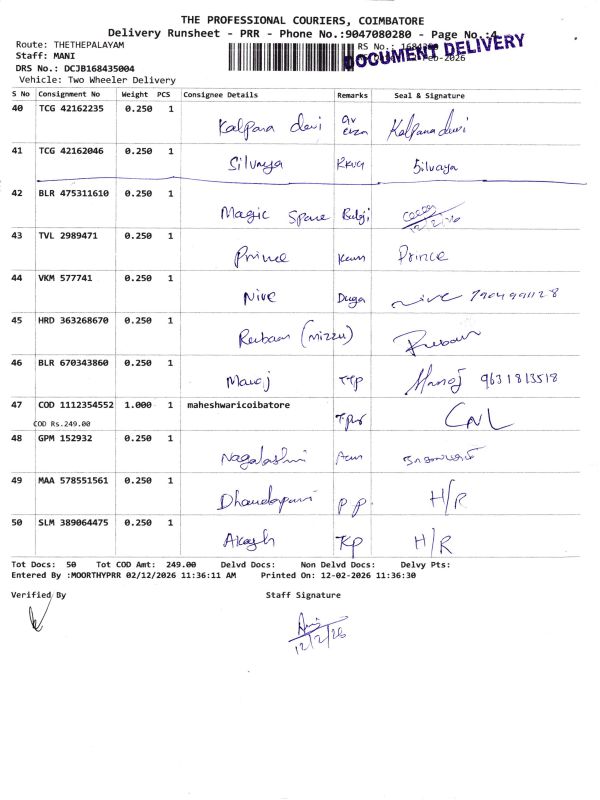 THE PROFESSIONAL COURIERS, COIMBATORE
Delivery Runsheet - PRR - Phone No.:9047080280 - Page No.:4
Route: THETHEPALAYAM
RS No.:
Staff: MANI
DOCUMENT DELIVERY
DRS No.: DCJB168435004
Vehicle: Two Wheeler Delivery
S No Consignment No Weight PCS Consignee Details Remarks Seal & Signature
40 TCG 42162235 0.250 1 Kalpana devi Kalpana devi
41 TCG 42162046 0.250 1 Silvaya Silvaya
42 BLR 475311610 0.250 1 Magic Spare 12/2/26
43 TVL 2989471 0.250 1 Prince Prince
44 VKM 577741 0.250 1 Nive Nive
45 HRD 363268670 0.250 1 (mizzu)
46 BLR 670343860 0.250 1 Manoj Manoj 9631813518
47 COD 1112354552 1.000 1 maheshwaricoibatore
COD Rs.249.00
48 GPM 152932 0.250 1
49 MAA 578551561 0.250 1 PP. H/R
50 SLM 389064475 0.250 1 Akash H/R
Tot Docs: 50 Tot COD Amt: 249.00 Delvd Docs: Non Delvd Docs: Delvy Pts:
Entered By :MOORTHYPRR 02/12/2026 11:36:11 AM Printed On: 12-02-2026 11:36:30
Verified By Staff Signature
12/2/26